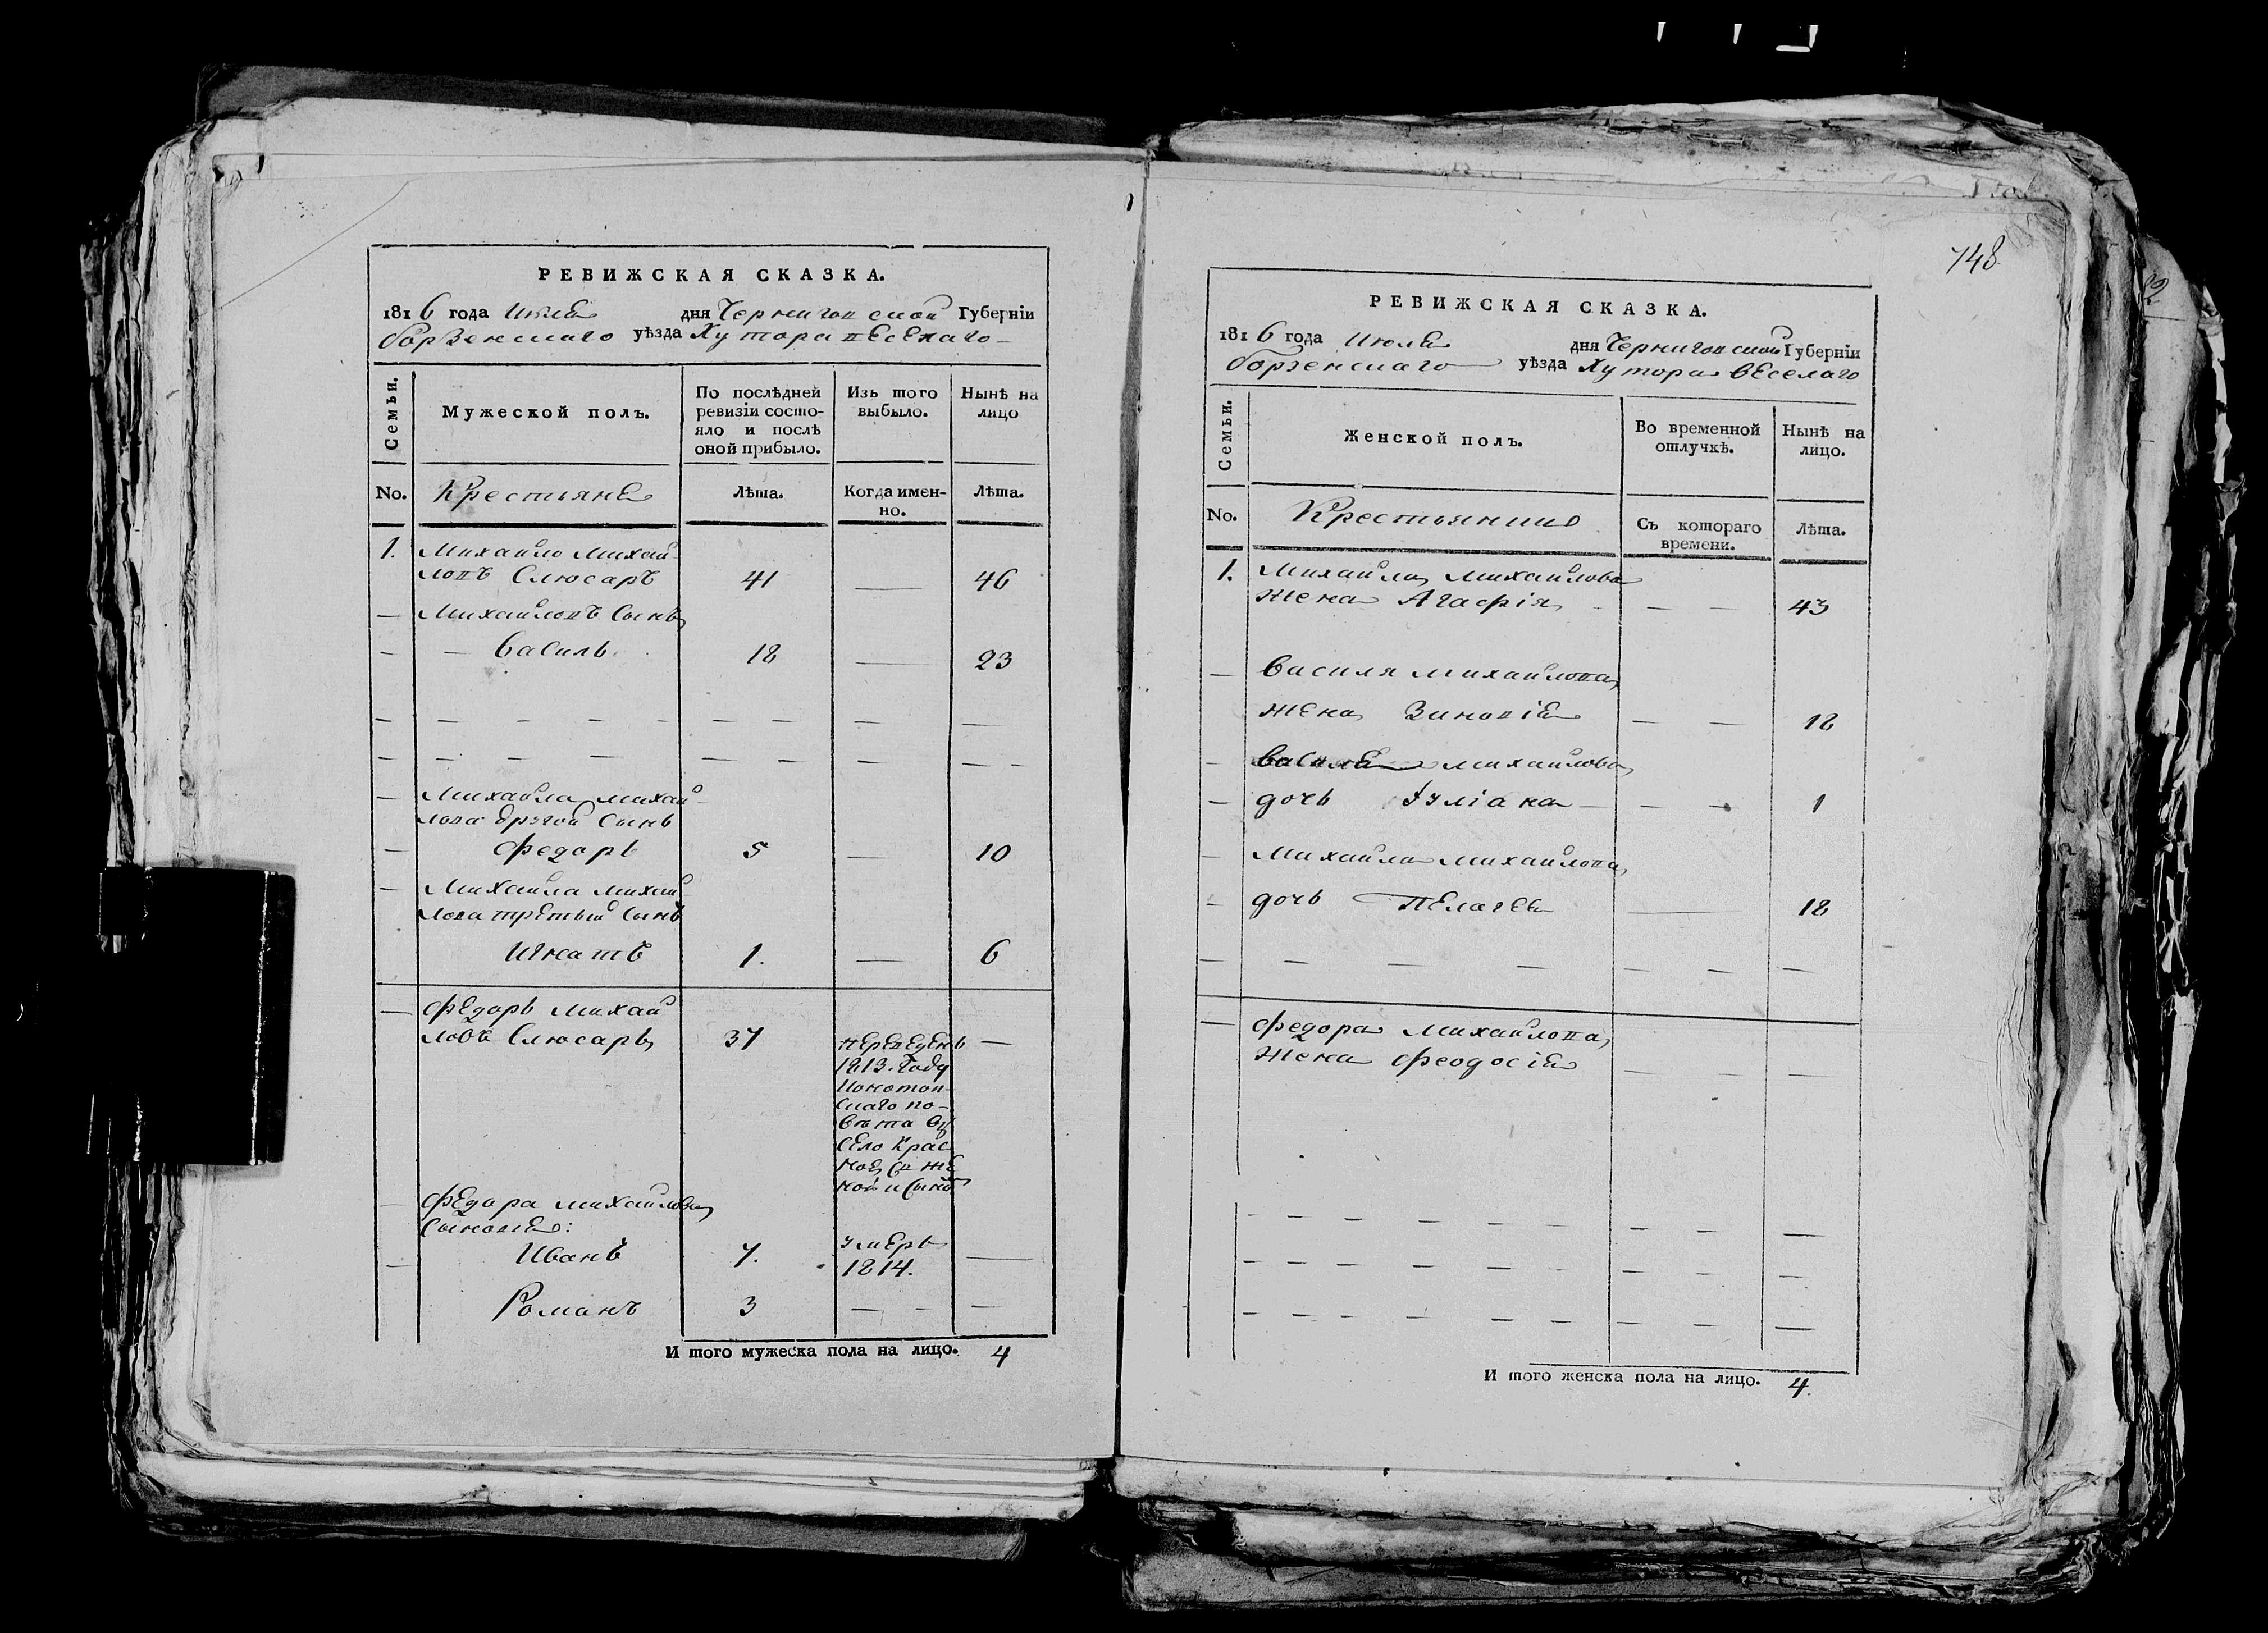 РЕВИЖСКАЯ СКАЗКА.
1816 года Июля дня Черниговской Губерніи
борзенскаго уѣзда Хутора веселаго
Семьи. Мужеской полъ. По послѣдней ревизіи состояло и послѣ оной прибыло. Изъ того выбыло. Нынѣ на лицо
No. Крестьяне Лѣта. Когда именно. Лѣта.
1. Михайло Михай-
ловъ Слюсарь 41 — 46
— Михайловъ Сынъ
— — Василь 18 — 23
— — — — — — — — —
— — — — — — — — — —
— Михайла Михай-
лова другой Сынъ
— Федоръ 5 — 10
— Михайла Михай-
лова третьий Сынъ
Игнатъ 1. — 6
— Федоръ Михай
ловъ Слюсарь 37 переведенъ —
1813. Году
Конотоп-
скаго по-
вѣта въ
Село Крас
ное, съ же
ной и Сыно
— Федора Михайлова
Сыновья:
— Иванъ 7. умеръ 1814. —
Романъ 3 — — —
И того мужеска пола на лицо. 4
748
РЕВИЖСКАЯ СКАЗКА.
1816 года Июля дня Черниговской Губерніи
борзенскаго уѣзда Хутора веселаго
Семьи. Женской полъ. Во временной отлучкѣ. Нынѣ на лицо.
No. Крестьянки Съ котораго времени. Лѣта.
1. Михайла Михайлова
жена Агафія — — 43
— Василя Михайлова
жена Зиновія — — 18
— Василя Михайлова
— дочь Іуліана — — — 1
— Михайла Михайлова
— дочь Пелагея — 18
— — — — — — —
— Федора Михайлова
жена Феодосія — — —
— — — — — — — — —
— — — — — — — — —
— — — — — — — — —
И того женска пола на лицо. 4.